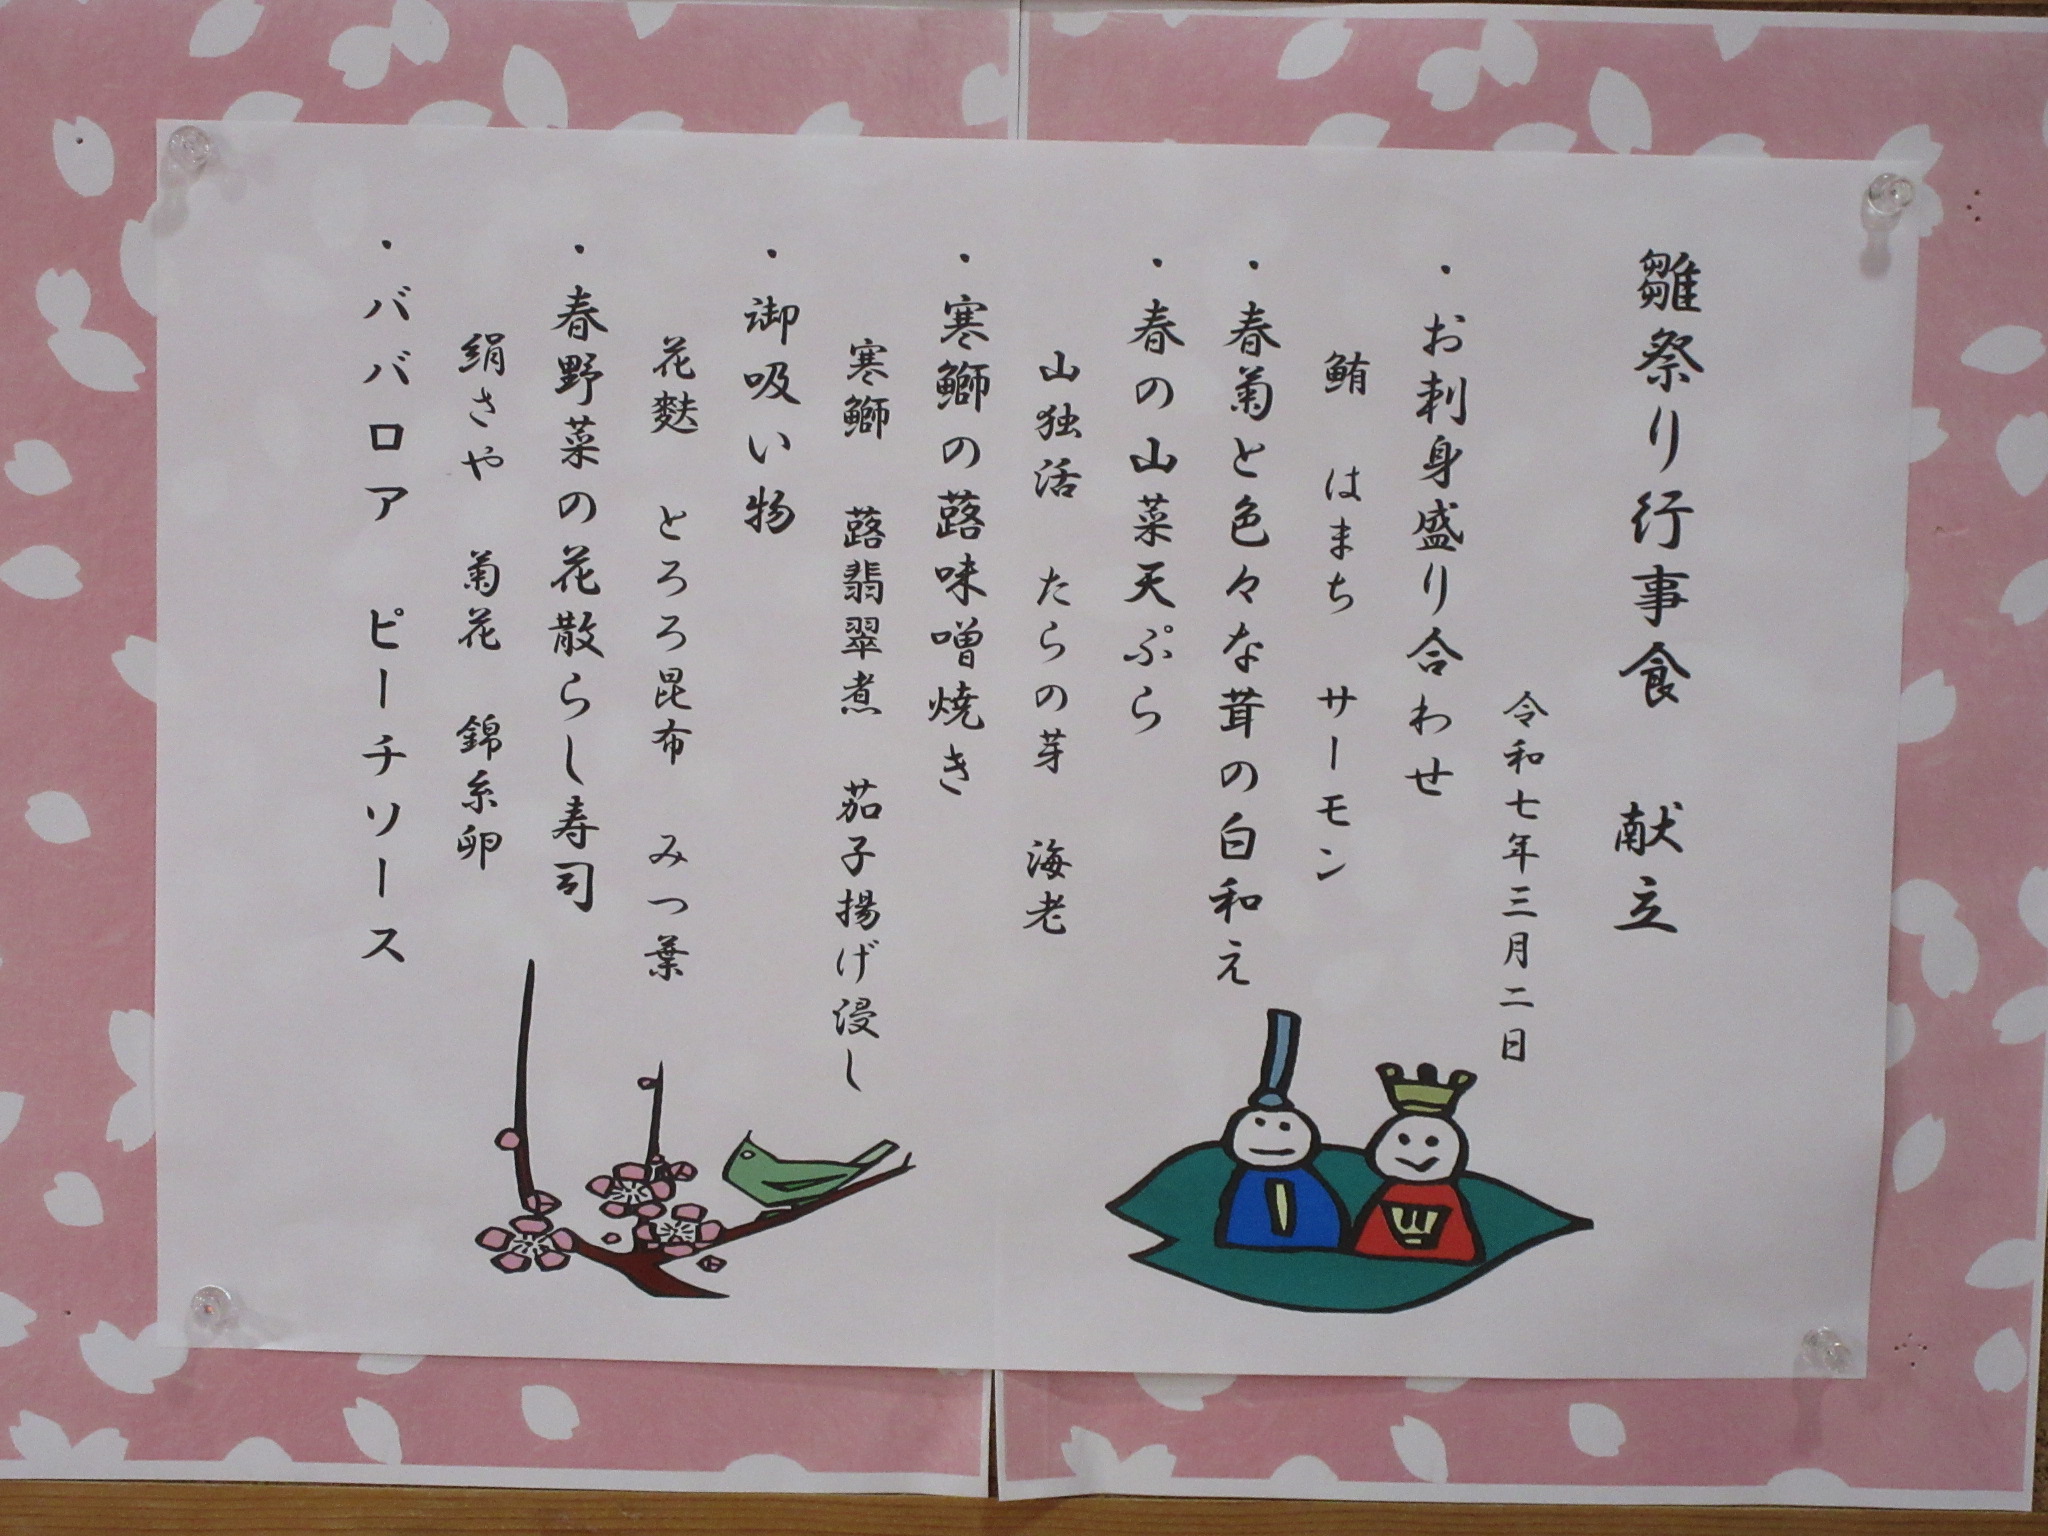 雛祭り行事食　献立
令和七年三月二日
・お刺身盛り合わせ
鮪　はまち　サーモン
・春菊と色々な茸の白和え
・春の山菜天ぷら
山独活　たらの芽　海老
・寒鰤の蕗味噌焼き
寒鰤　蕗翡翠煮　茄子揚げ浸し
・御吸い物
花麩　とろろ昆布　みつ葉
・春野菜の花散らし寿司
絹さや　菊花　錦糸卵
・ババロア　ピーチソース